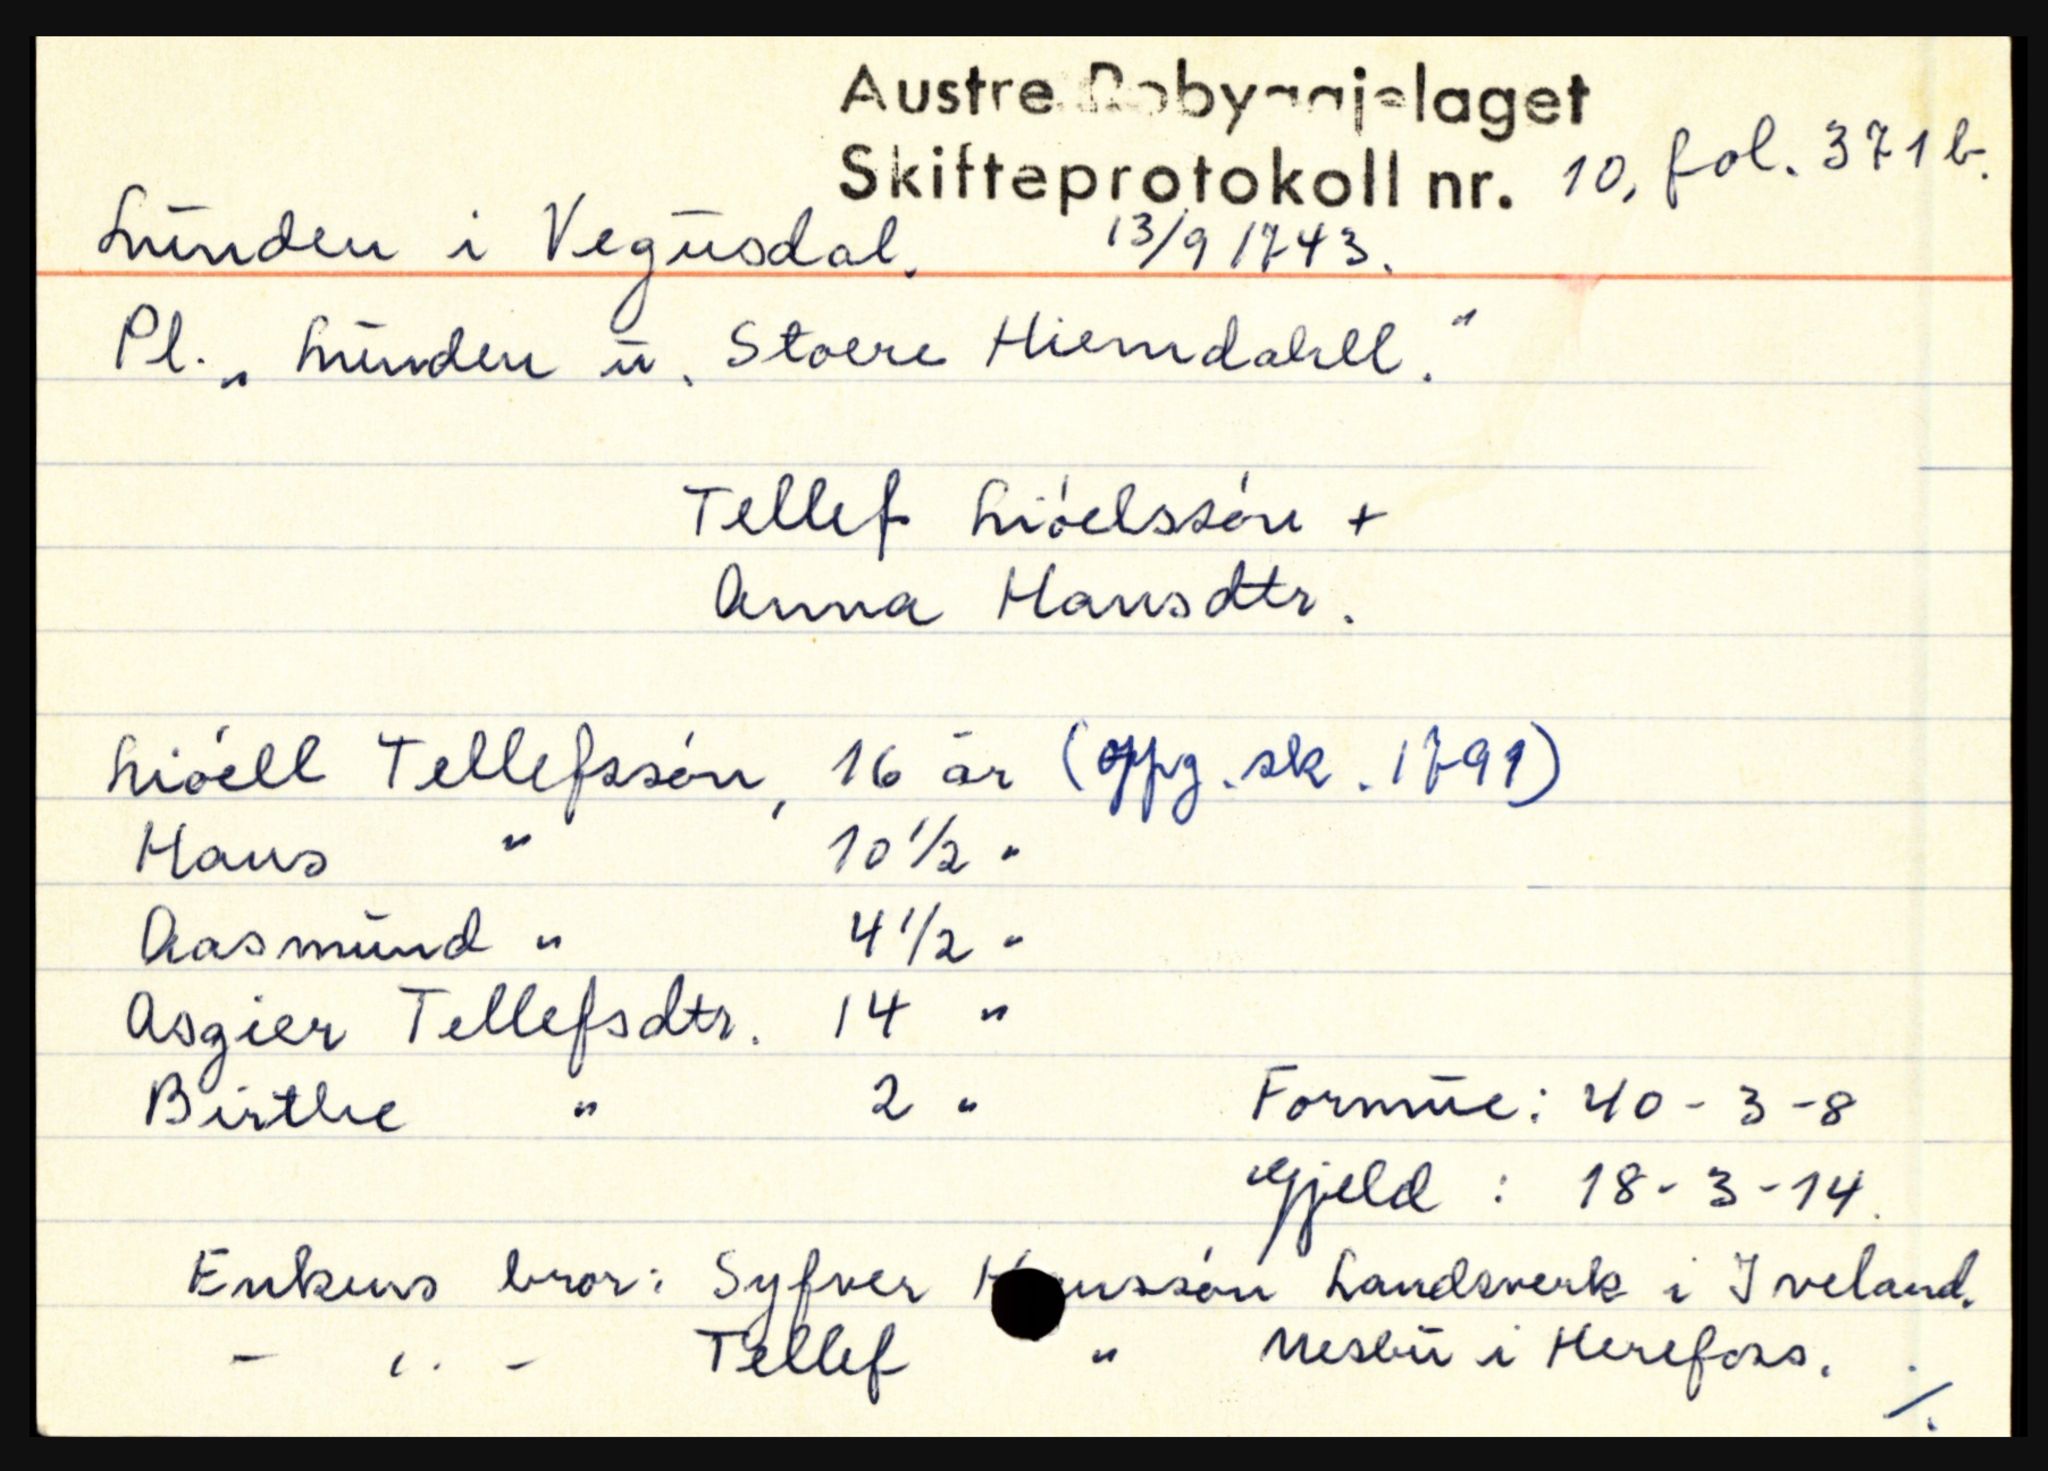 Austre Robyggjelaget
Skifteprotokoll nr. 10, fol. 371 b.
Lunden i Vegusdal. 13/9 1743.
Pl. „Lunden u. Stoere Hiemdahll."
Tellef Liöelssön +
Anna Hansdtr.
Liöell Tellefssön, 16 år (oppg. sk. 1791)
Hans " 10 1/2 "
Aasmund " 4 1/2 "
Asgier Tellefsdtr. 14 "
Birthe " 2 "
Formue: 40 - 3 - 8
Gjeld : 18 - 3 - 14.
Enkens bror: Syfver Hanssön Landsverk i Iveland.
- " - Tellef " Nesbu i Herefoss.
./.